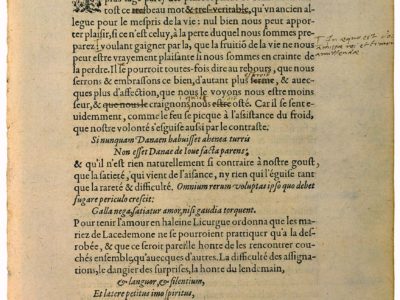 tost ce beau mot & tres-veritable, qu'vn ancien al-
legue pour le mespris de la vie: nul bien nous peut appor-
ter plaisir, si ce n'est celuy, à la perte duquel nous sommes
preparez
voulant gaigner par là, que la fruitiō de la vie ne nous
peut estre vrayement plaisante si nous sommes en crainte
de la perdre. Il se pourroit toutes-fois dire au rebours, que nous
serrons & embrassons ce bien, d'autant plus ferme, & auec-
ques plus d'affection, que nous le voyons nous estre moins
seur, & que nous le craignons nous estre osté. Car il se sent e-
uidemment, comme le feu se picque à l'assistance du froid,
que nostre volonté s'esguise aussi par le contraste.
Si nunquam Danaen habuisset ahenea turris
Non esset Danae de Ioue facta parens,
& qu'il n'est rien naturellement si contraire à nostre goust,
que la satieté, qui vient de l'aisance, ny rien qui l'éguise tant
que la rareté & difficulté. Omnium rerum voluptas ipso quo debet
fugare periculo crescit:
Galla nega, satiatur amor, nisi gaudia torquent.
Pour tenir l'amour en haleine Licurgue ordonna que les ma-
riez de Lacedemone ne se pourroient prattiquer qu'à la des-
robée, & que ce seroit pareille honte de les rencontrer cou-
chés ensemble, qu'auecques d'autres. La difficulté des assigna-
tions, le dangier des surprises, la honte du lendemain,
& languor, & silentium,
Et latere petitus imo spiritus,